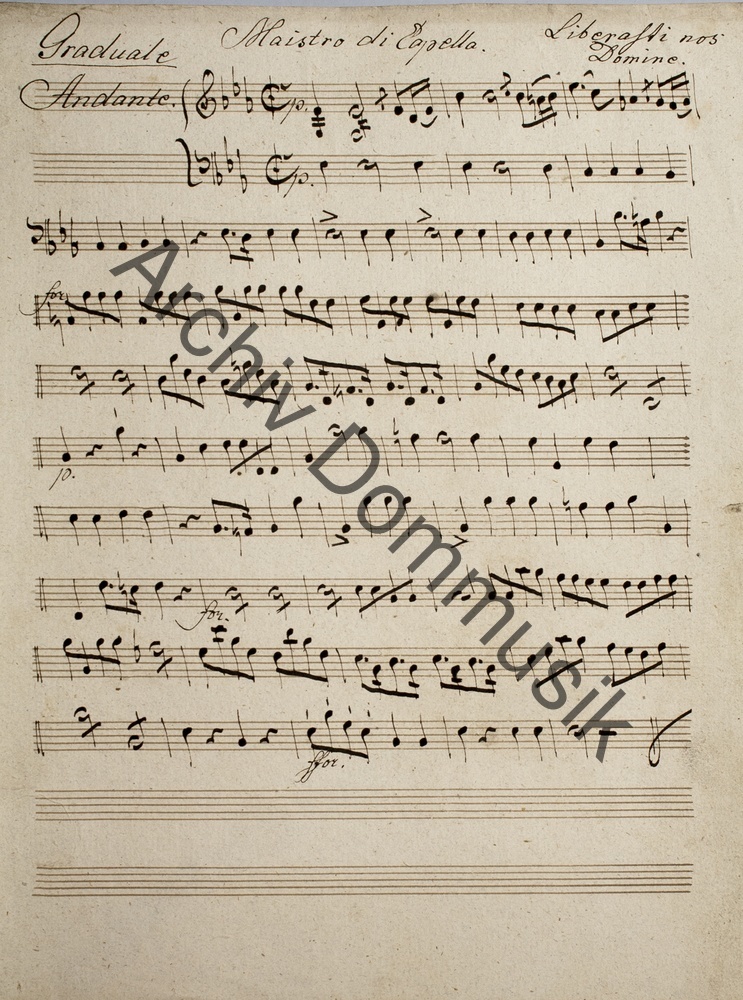 Graduale Maistro di Capella. Liberasti nos
Domine.
Andante.
p.
p.
for
p.
for.
ffor.
Archiv Dommusik